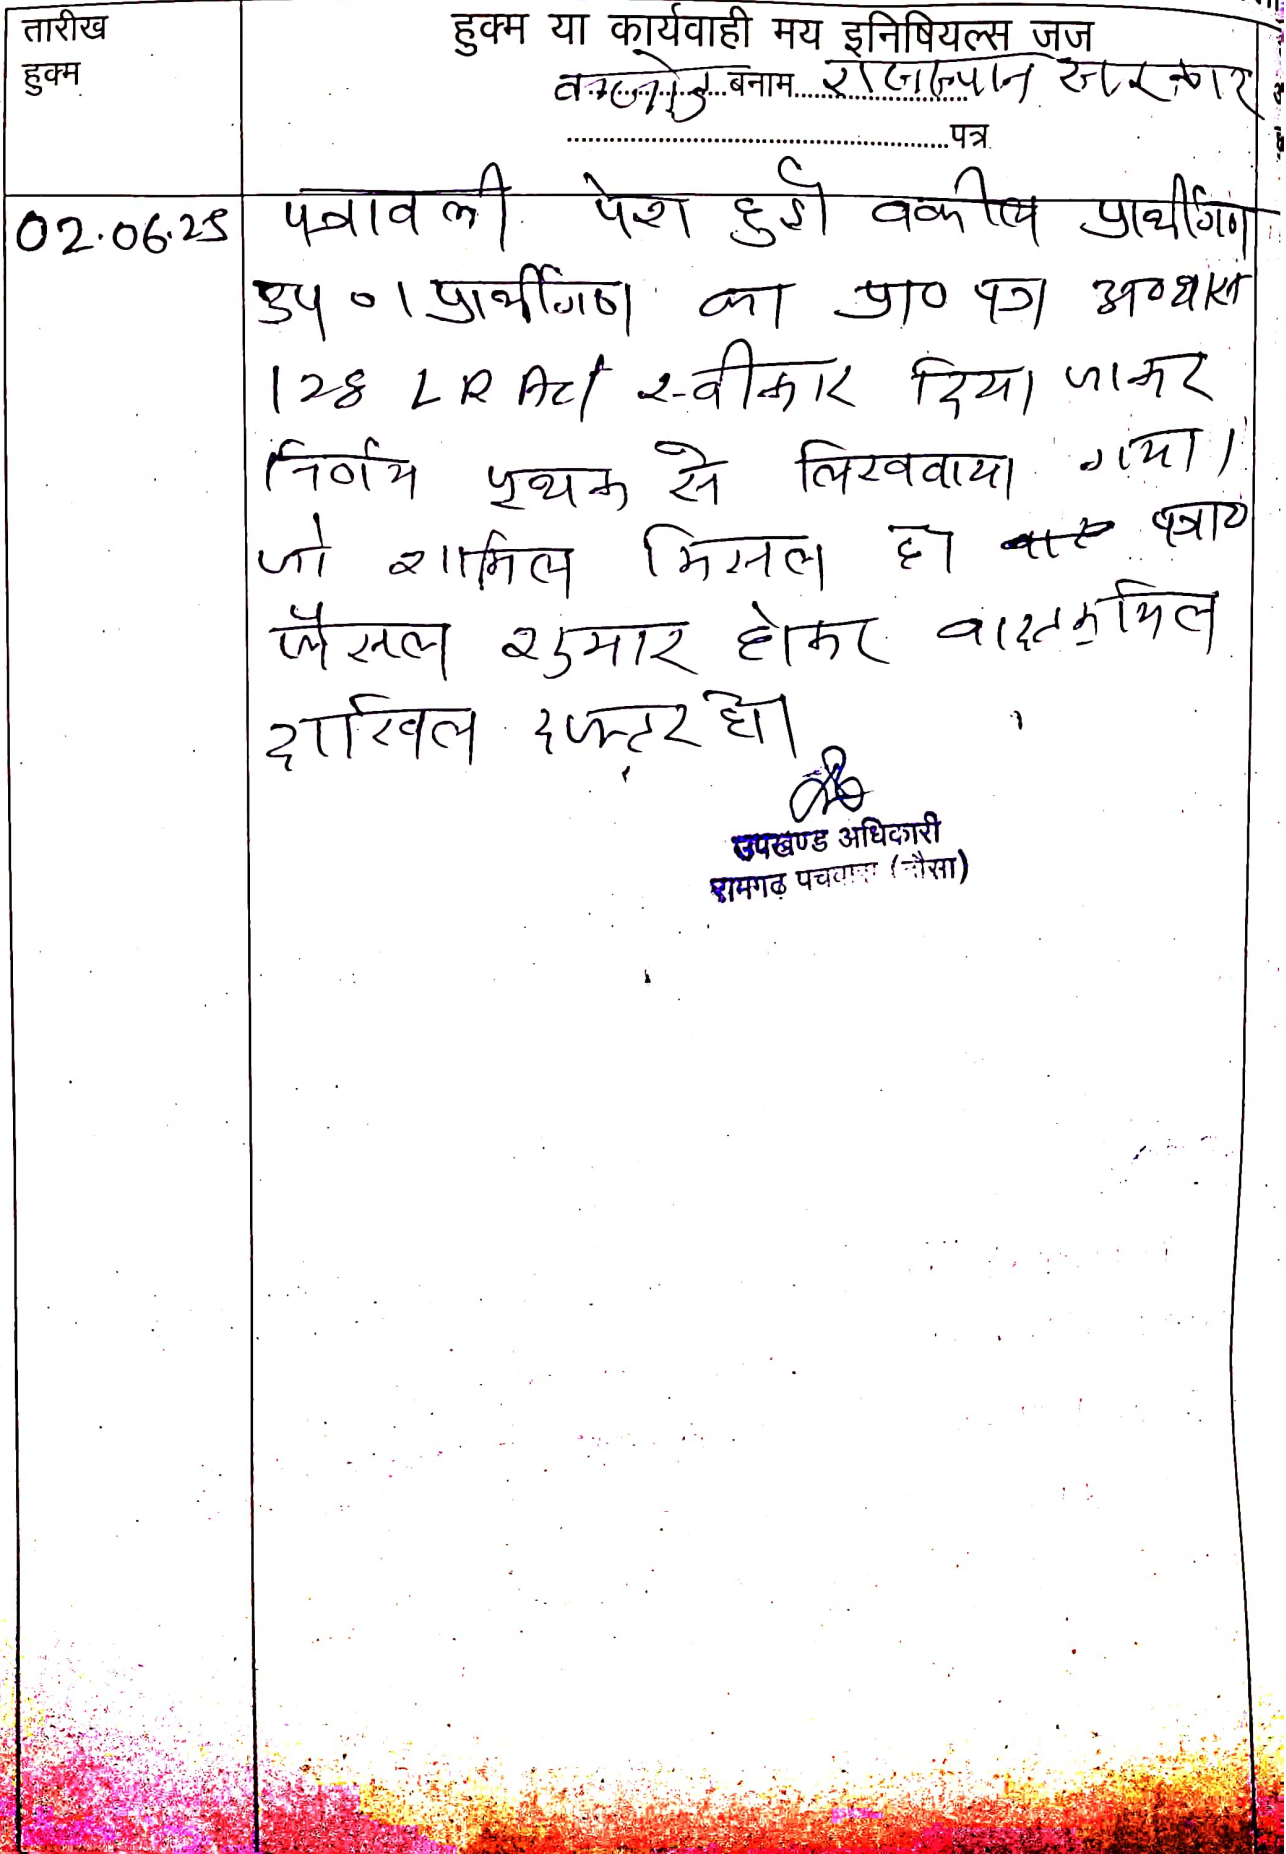 तारीख
हुक्म
हुक्म या कार्यवाही मय इनिषियल्स जज
बनाम राजस्थान सरकार
पत्र
02.06.25
पत्रावली पेश हुई वकील प्रार्थीगण
उप ०। प्रार्थीगण का प्रा० पत्र अ०धारा
128 LR Act स्वीकार किया जाकर
निर्णय पृथक से लिखवाया गया।
जो शामिल मिसल हो पत्रा०
फैसल शुमार होकर
दाखिल दफ्तर हो।
उपखण्ड अधिकारी
रामगढ़ पचवारा (दौसा)